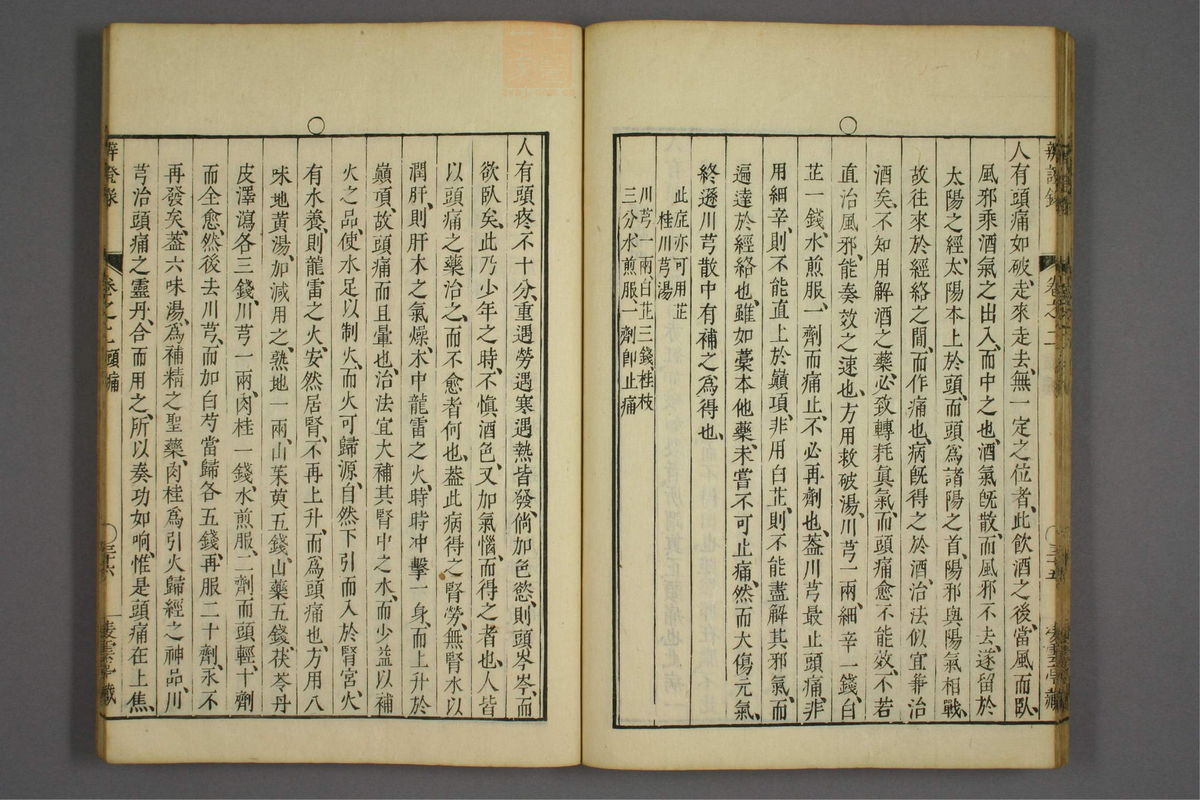 ○
人有頭痛如破、走來走去、無一定之位者、此飲酒之後、當風而臥、
風邪乘酒氣之出入、而中之也、酒氣旣散、而風邪不去、遂留於
太陽之經、太陽本上於頭、而頭爲諸陽之首、陽邪與陽氣相戰、
故往來於經絡之間、而作痛也、病旣得之於酒、治法似宜兼治
酒矣、不知用解酒之藥、必致轉耗眞氣、而頭痛愈不能效、不若
直治風邪、能奏效之速也、方用救破湯、川芎一兩、細辛一錢、白
芷一錢、水煎服、一劑而痛止、不必再劑也、蓋川芎最止頭痛、非
用細辛、則不能直上於巔頂、非用白芷、則不能盡解其邪氣、而
遍達於經絡也、雖如藁本他藥、未嘗不可止痛、然而大傷元氣、
終遜川芎散中有補之爲得也、
此症亦可用芷
桂川芎湯
川芎一兩、白芷三錢、桂枝
三分、水煎服、一劑卽止痛
○
人有頭疼不十分重、遇勞遇寒遇熱皆發、倘加色慾、則頭岑岑、而
欲臥矣、此乃少年之時、不愼酒色、又加氣惱、而得之者也、人皆
以頭痛之藥治之、而不愈者何也、蓋此病得之腎勞、無腎水以
潤肝、則肝木之氣燥、木中龍雷之火、時時冲擊一身、而上升於
巔頂、故頭痛而且暈也、治法宜大補其腎中之水、而少益以補
火之品、使水足以制火、而火可歸源、自然下引而入於腎宮、火
有水養、則龍雷之火、安然居腎、不再上升、而爲頭痛也、方用八
味地黃湯、加減用之、熟地一兩、山茱萸五錢、山藥五錢、茯苓丹
皮澤瀉各三錢、川芎一兩、肉桂一錢、水煎服、二劑而頭輕、十劑
而全愈、然後去川芎、而加白芍當歸各五錢、再服二十劑、永不
再發矣、蓋六味湯、爲補精之聖藥、肉桂爲引火歸經之神品、川
芎治頭痛之靈丹、合而用之、所以奏功如响、惟是頭痛在上焦、
辨證錄
卷之二 頭痛
三十六